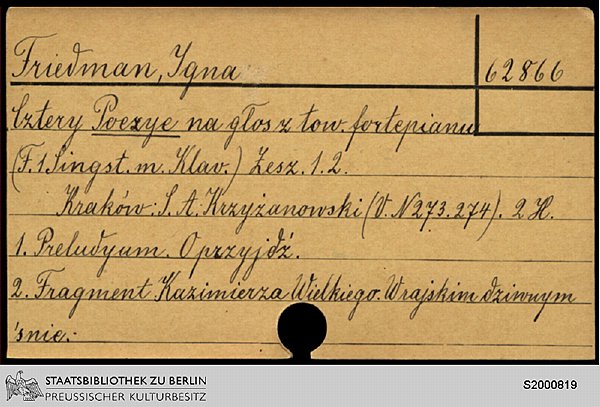 Friedman, Igna
62866
Cztery Poezye na głos z tow. fortepianu
(F. 1 Singst. m. Klav.) Zesz. 1. 2.
Kraków: S. A. Krzyżanowski (V. N 273. 274). 2 H.
1. Preludyum. O przyjdź.
2. Fragment. Kazimierza Wielkiego. W rajskim dziwnym
śnie.-
STAATSBIBLIOTHEK ZU BERLIN
PREUSSISCHER KULTURBESITZ
S2000819